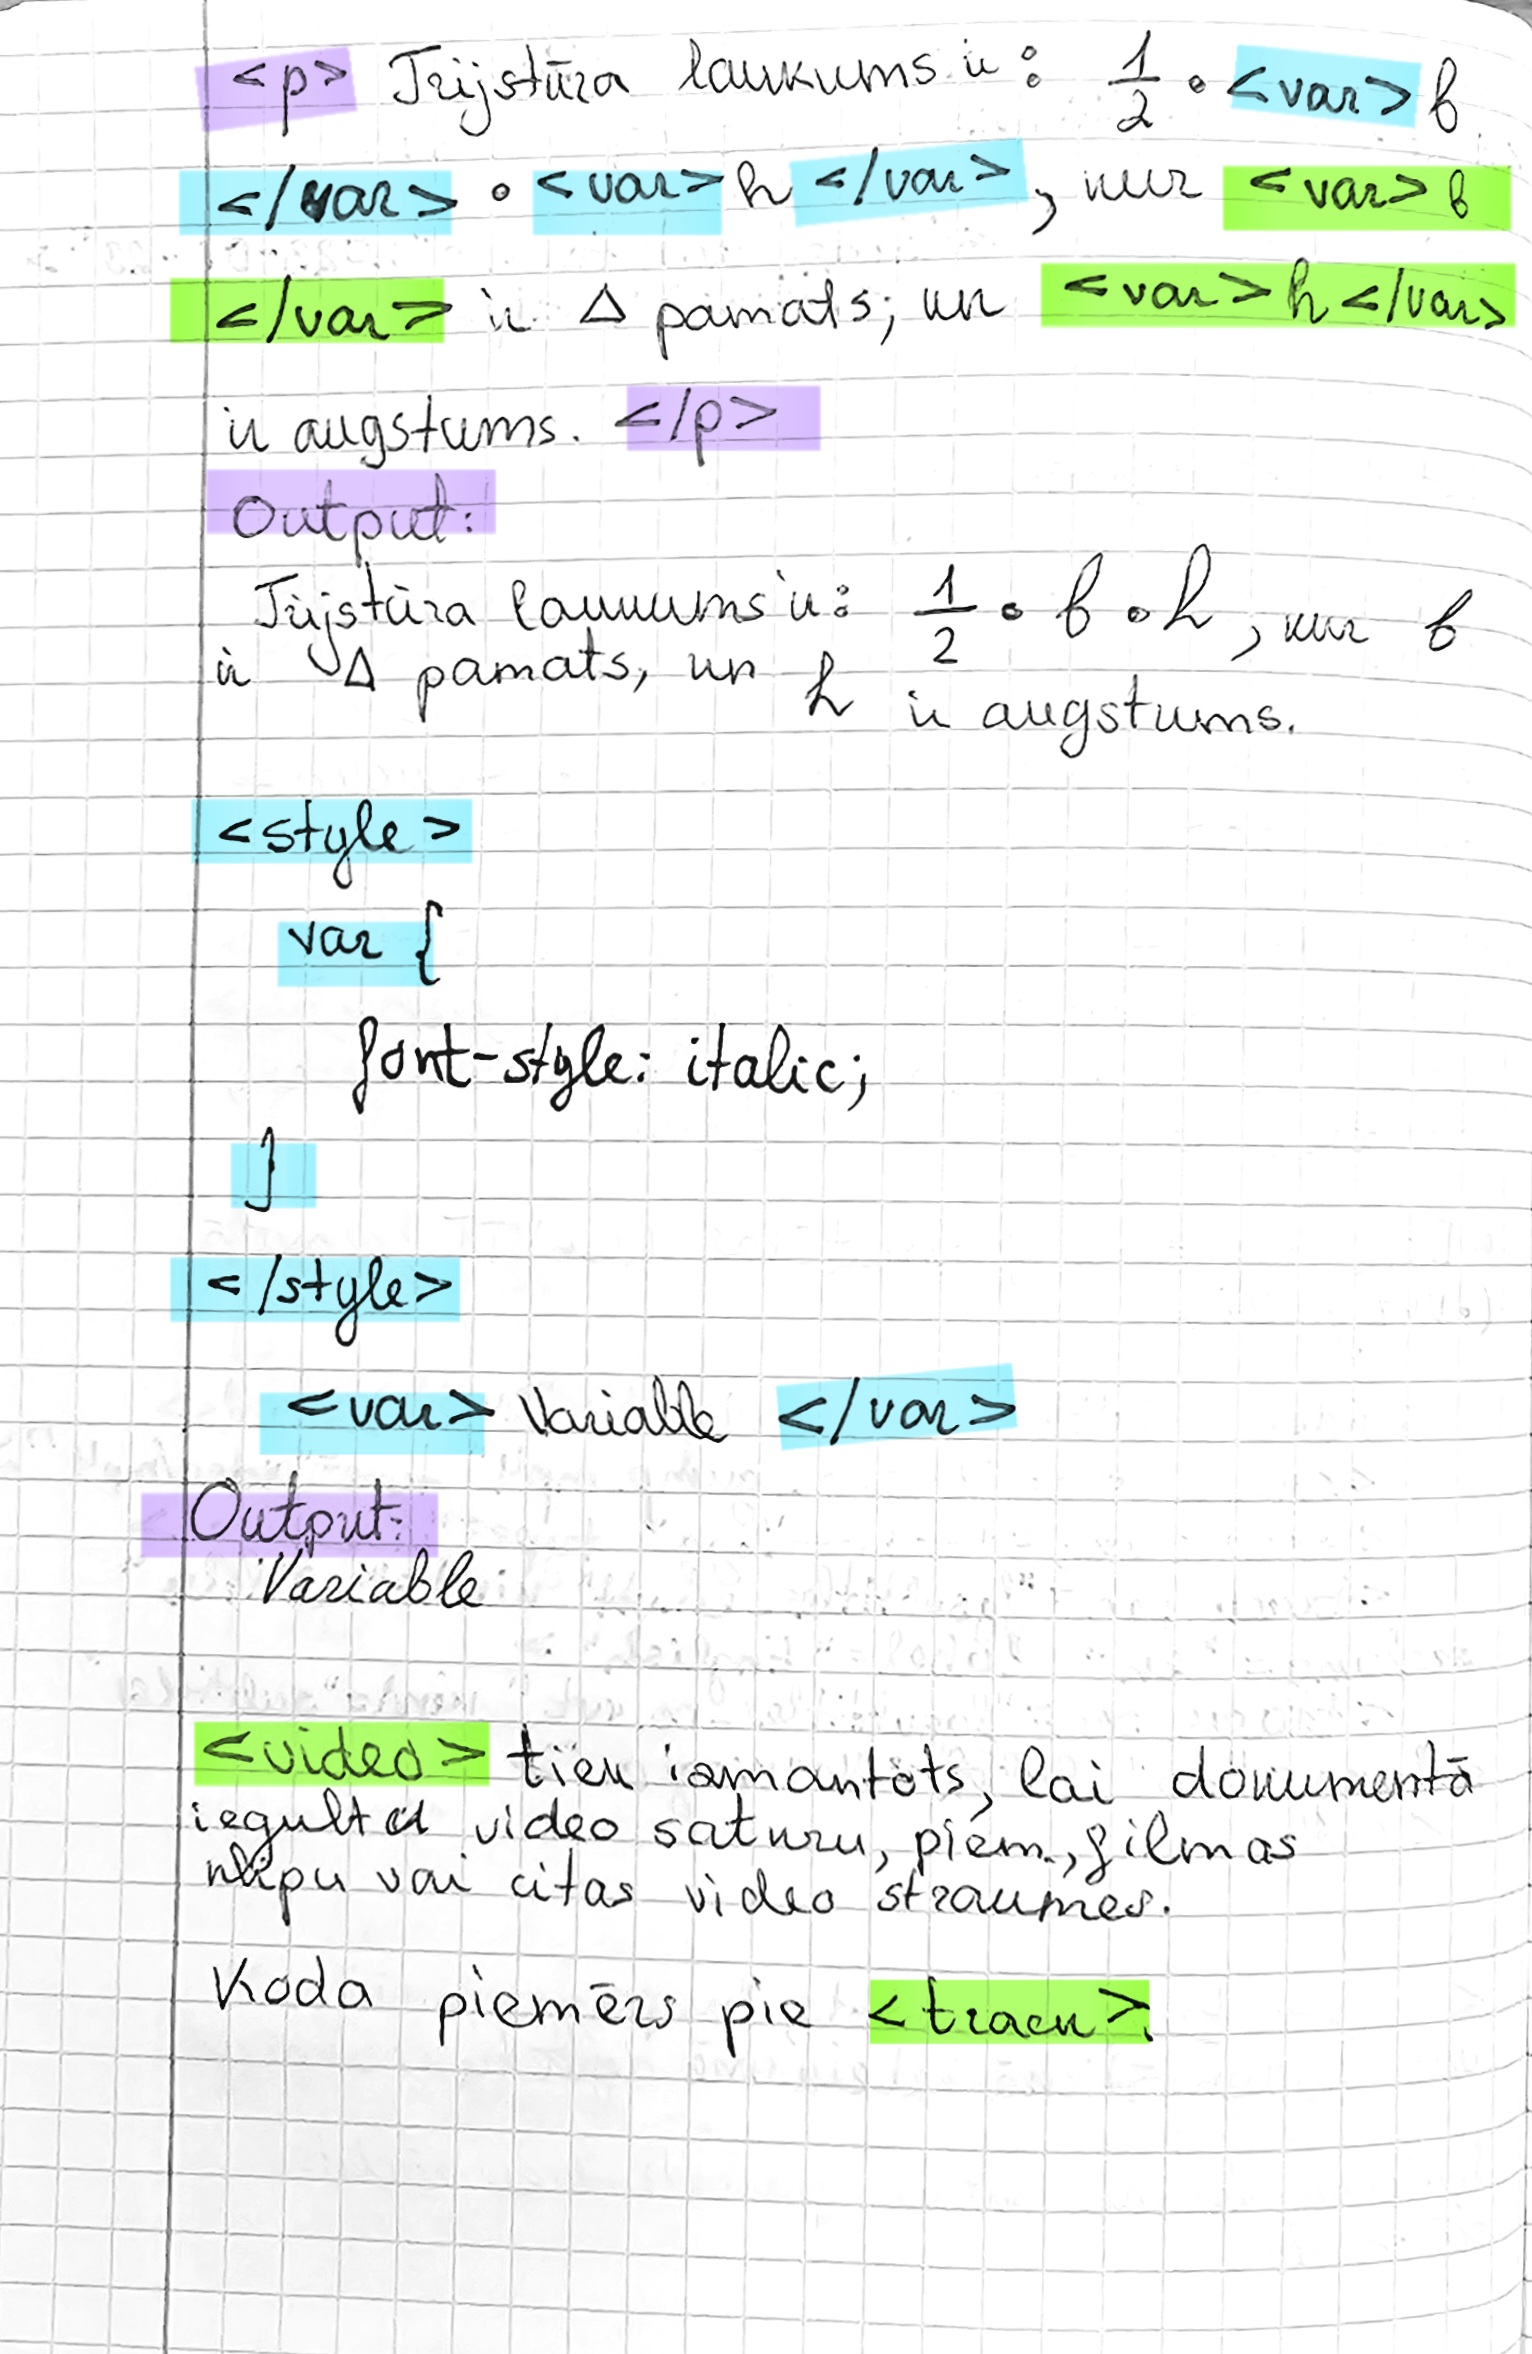 <p> Trijstūra laukums ir: 1/2 • <var> b
</var> • <var> h </var>, kur <var> b
</var> ir Δ pamats; un <var> h </var>
ir augstums. </p>
Output:
Trijstūra laukums ir: 1/2 • b • h, kur b
ir Δ pamats, un h ir augstums.
<style>
var {
font-style: italic;
}
</style>
<var> Variable </var>
Output:
Variable
<video> tiek izmantots, lai dokumentā
iegultu video saturu, piem., filmas
klipu vai citas video straumes.
Koda piemērs pie <track>.